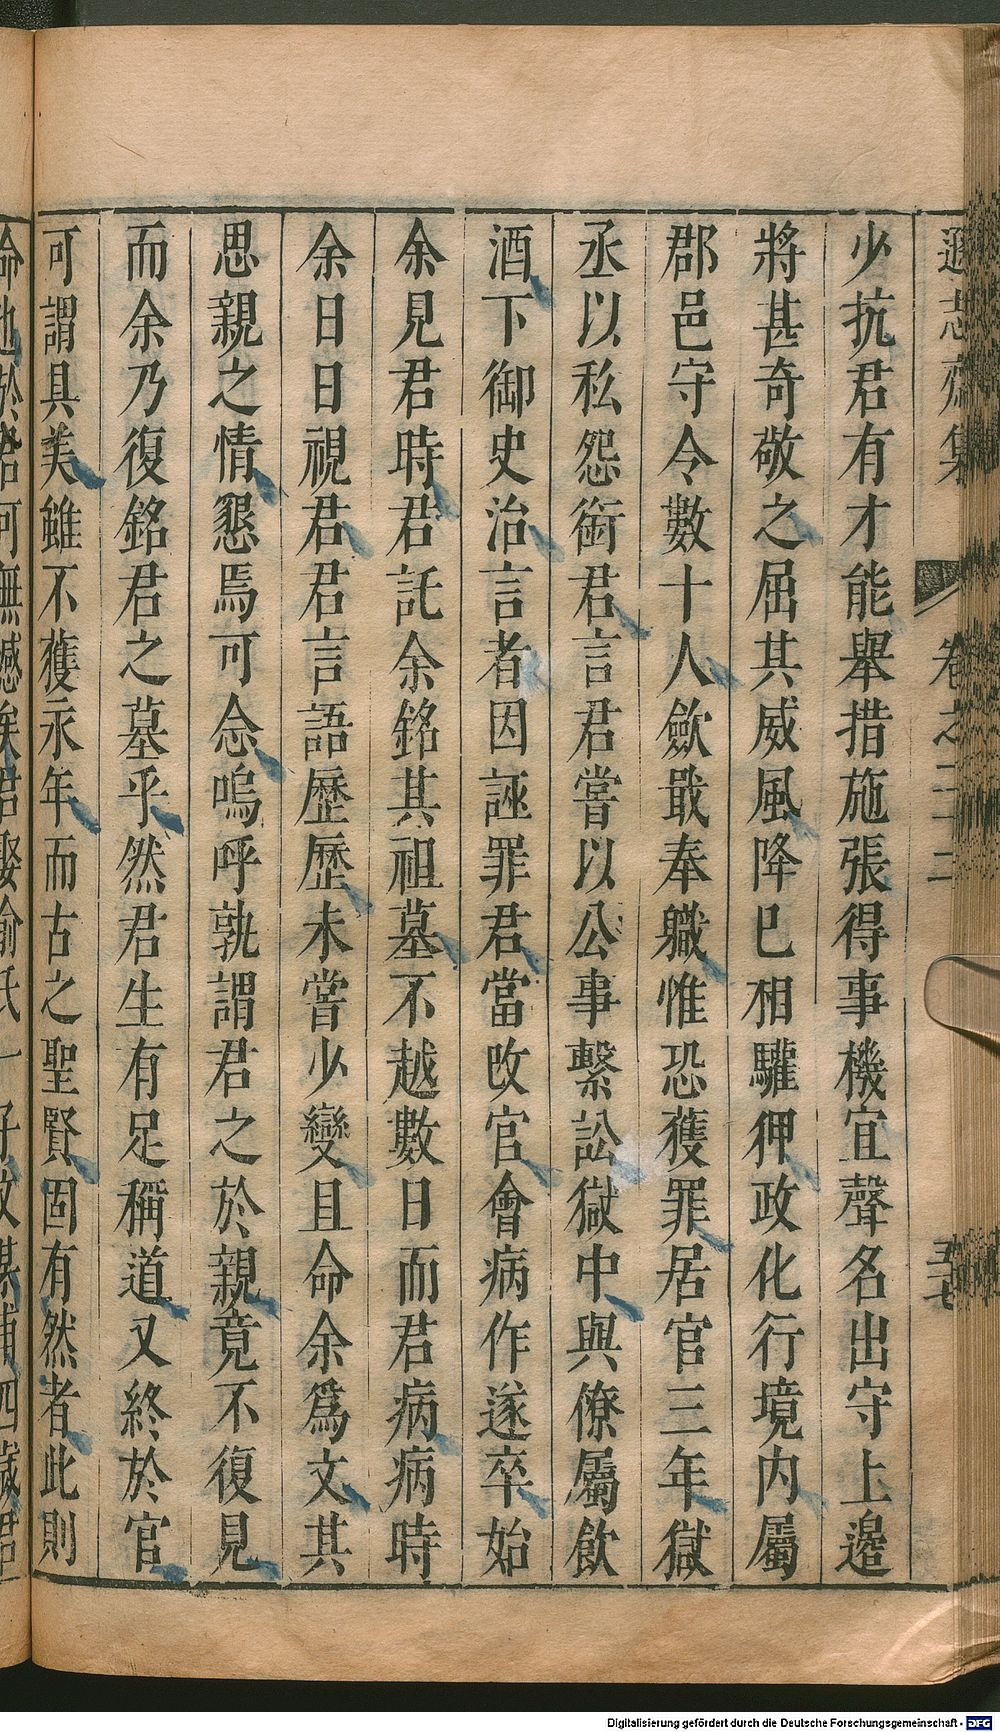 遜志齋集 卷之二十二 五七
少抗君有才能舉措施張得事機宜聲名出守上邉
將甚奇敬之屈其威風降巳相驩狎政化行境内屬
郡邑守令數十人歛戢奉職惟恐獲罪居官三年獄
丞以私怨銜君言君嘗以公事繫訟獄中與僚屬飲
酒下御史治言者因誣罪君當改官會病作遂卒始
余見君時君託余銘其祖墓不越數日而君病病時
余日日視君君言語歷歷未嘗少變且命余爲文其
思親之情懇焉可念嗚呼孰謂君之於親竟不復見
而余乃復銘君之墓乎然君生有足稱道又終於官
可謂具美雖不獲永年而古之聖賢固有然者此則
命也於君何無憾矣君娶俞氏一子敏某甫四歲君
Digitalisierung gefördert durch die Deutsche Forschungsgemeinschaft - DFG